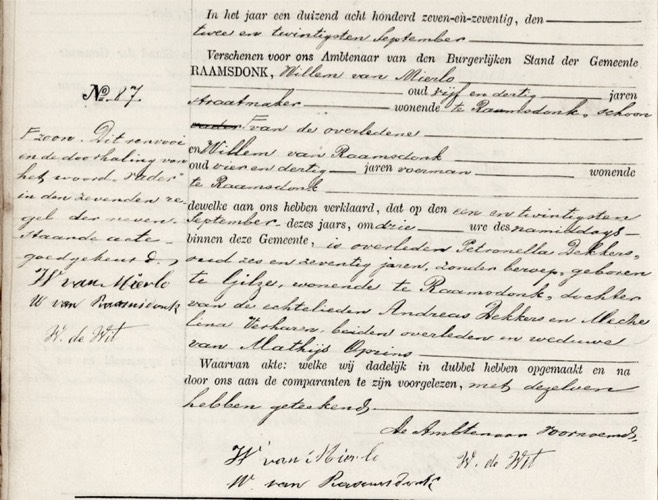 In het jaar een duizend acht honderd zeven-en-zeventig, den
twee en twintigsten September
Verschenen voor ons Ambtenaar van den Burgerlijken Stand der Gemeente
RAAMSDONK, Willem van Mierlo
oud vijf en dertig jaren
straatmaker wonende te Raamsdonk, schoon
vader F van de overledene
en Willem van Raamsdonk
oud vier en dertig jaren voerman wonende
te Raamsdonk
dewelke aan ons hebben verklaard, dat op den een en twintigsten
September dezes jaars, om drie ure des namiddags
binnen deze Gemeente, is overleden Petronella Dekkers,
oud zes en zeventig jaren, zonder beroep, geboren
te Gilze, wonende te Raamsdonk, dochter
van de echtelieden Andreas Dekkers en Miche
lina Verharen, beiden overleden en weduwe
van Mathijs Oprins
Waarvan akte: welke wij dadelijk in dubbel hebben opgemaakt en na
door ons aan de comparanten te zijn voorgelezen, met dezelven
hebben geteekend.
de Ambtenaar voornoemd,
W van Mierlo
W. de Wit
W. van Raamsdonk
No. 87.
F zoon. Dit renvooi
en de doorhaling van
het woord "vader"
in den zevenden re-
gel der neven-
staande acte
goedgekeurd.
W van Mierlo
W van Raamsdonk
W. de Wit